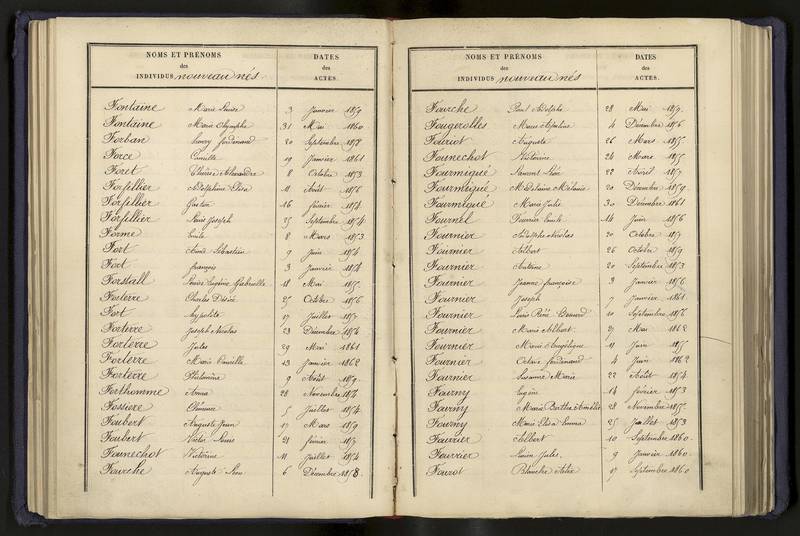 NOMS ET PRÉNOMS
des
INDIVIDUS nouveau nés.
DATES
des
ACTES.
Fontaine Marie Louise 3 Janvier 1859
Fontaine Marie Olympe 31 Mai 1860
Forban henry ferdinand 20 Septembre 1858
Force Camille 19 Janvier 1861
Foret Thérèse Alexandre 8 Octobre 1853
Forfellier Adolphine Elisa 11 Août 1856
Forfellier Gaston 16 février 1854
Forfellier Louis Joseph 25 Septembre 1854
Forme Emile 8 Mars 1853
Fort Aimé Sébastien 9 Juin 1854
Fort françois 3 Janvier 1858
Forstall Louise Eugénie Gabrielle 18 Mai 1855
Forterre Charles Désiré 25 Octobre 1856
Fort hypolite 17 Juillet 1857
Forterre Joseph Nicolas 23 Décembre 1854
Forterre Jules 29 Mai 1861
Forterre Marie Camille 13 Janvier 1862
Forterre Philomène 9 Août 1859
Forthomme Anna 28 Novembre 1856
Fossiere 5 Juillet 1854
Foubert Auguste Jean 17 Mars 1859
Foubert Victor Louis 21 février 1857
Founechot Victorine 11 Juillet 1854
Fourche Auguste Léon 6 Décembre 1858
NOMS ET PRÉNOMS
des
INDIVIDUS nouveau nés
DATES
des
ACTES.
Fourche Paul Adolphe 28 Mai 1857
Fougerolles Marie Apoline 4 Décembre 1856
Fouriot Auguste 26 Mars 1855
Founechot Victorine 24 Mars 1855
Fourmigué Laurent Léon 22 Avril 1857
Fourmigué Mélanie 20 Décembre 1859
Fourmigué Marie Julie 30 Décembre 1861
Fournel Fourrier Emile 14 Juin 1856
Fournier Adolphe Nicolas 20 Octobre 1857
Fournier Albert 26 Octobre 1859
Fournier Antoine 20 Septembre 1853
Fournier Jeanne françoise 3 Janvier 1856
Fournier Joseph 7 Janvier 1861
Fournier Louis René 10 Septembre 1856
Fournier Marie Albert 27 Mai 1862
Fournier Marie Angélique 11 Juin 1855
Fournier Octave ferdinand 4 Juin 1862
Fournier Suzanne Marie 22 Août 1854
Fourny Eugène 14 février 1853
Fourny Maria Berthe Amélie 28 Novembre 1855
Fourny Marie Elisa Emma 25 Juillet 1853
Fourrier Albert 10 Septembre 1860
Fourrier Lucien Jules. 9 Janvier 1860
Fourot Blanche 17 Septembre 1860